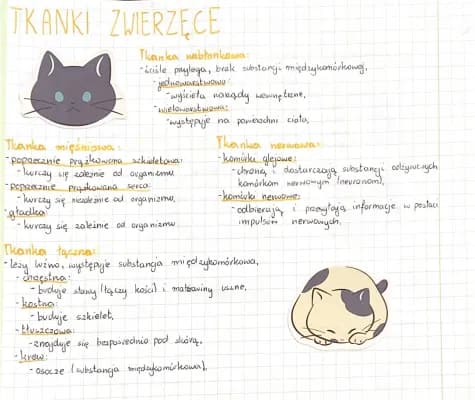 TKANKI ZWIERZĘCE
Tkanka nabłonkowa:
- ściśle przylega, brak substancji międzykomórkowej,
- jednowarstwowa:
- wyściela narządy wewnętrzne,
- wielowarstwowa:
- występuje na powierzchni ciała,
Tkanka mięśniowa:
- poprzecznie prążkowana szkieletowa:
- kurczy się zależnie od organizmu
- poprzecznie prążkowana serca:
- kurczy się niezależnie od organizmu,
- gładka:
- kurczy się zależnie od organizmu
Tkanka nerwowa:
- komórki glejowe:
- chronią i dostarczają substancji odżywczych
komórkom nerwowym (neuronom),
- komórki nerwowe:
- odbierają i przesyłają informacje w postaci
impulsów nerwowych,
Tkanka łączna:
- leży luźno, występuje substancja międzykomórkowa,
- chrzęstna:
- buduje stawy (łączy kości) i małżowiny uszne,
- kostna:
- buduje szkielet,
- tłuszczowa:
- znajduje się bezpośrednio pod skórą,
- krew:
- osocze (substancja międzykomórkowa),